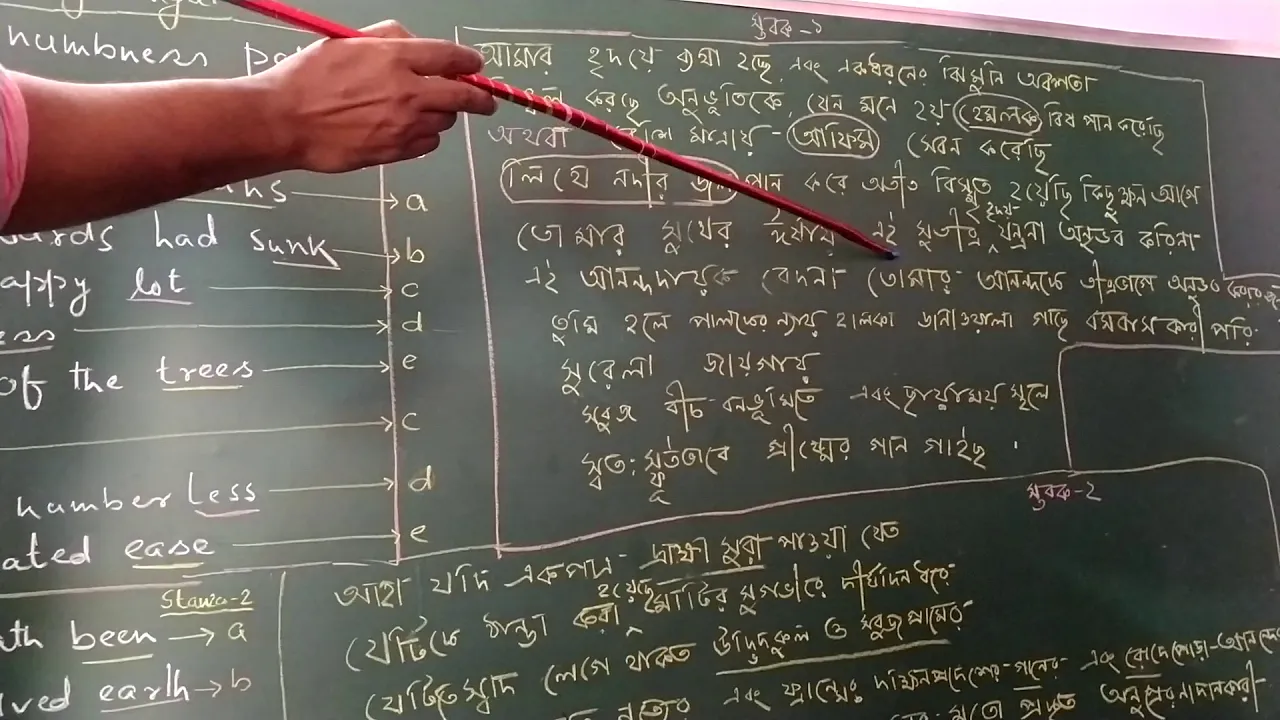 numbness pa
a
wards had sunk b
appy lot c
ess d
of the trees e
c
number less d
ated ease e
Stanza-2
uth been a
lved earth b
স্তবক-১
আমার হৃদয়ে ব্যথা হচ্ছে, এবং একধরনের ঝিমুনি অবশতা
করছে অনুভূতিকে, যেন মনে হয় হেমলক বিষ পান করেছি
অথবা মাত্রায় আফিম সেবন করেছি
লিথে নদীর জল পান করে অতীত বিস্মৃত হয়েছি কিছুক্ষন আগে
তোমার সুখের ঈর্ষায় এই সুতীব্র হৃদয় যন্ত্রনা অনুভব করিনা
এই আনন্দদায়ক বেদনা তোমার আনন্দকে তীব্রভাবে অনুভব
তুমি হলে পালকের ন্যায় হালকা ডানাওয়ালা গাছে বসবাস কারী পরি:
সুরেলা জায়গায়
সবুজ বীচ বনভূমিতে এবং ছায়াময় স্থলে
স্বত:স্ফূর্তভাবে গ্রীষ্মের গান গাইছ
স্তবক-২
আহা যদি একপাত্র দ্রাক্ষা সুরা পাওয়া যেত
যেটিকে ঠান্ডা করা হয়েছে মাটির সুগভীরে দীর্ঘদিন ধরে
যেটিতে স্বাদ লেগে থাকত উদ্ভিদকুল ও সবুজ গ্রামের
এবং ফ্রান্সের দক্ষিনপ্রদেশের গানের এবং রোদে পোড়া
মতো প্রদত্ত অনুপ্রেরনাদানকারী